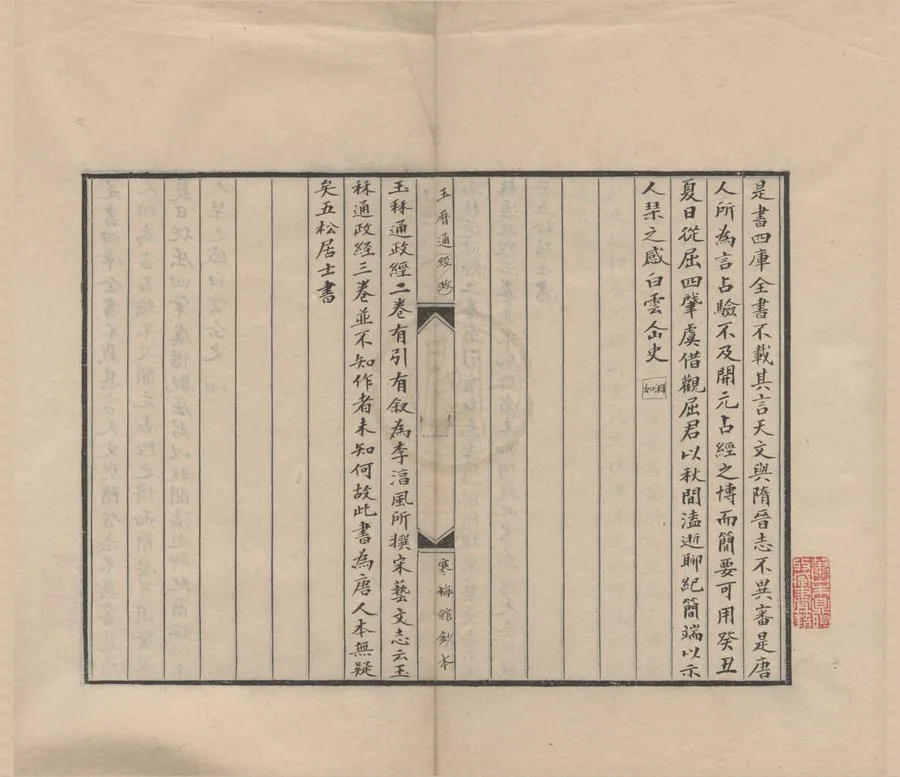 是書四庫全書不載其言天文與隋晉志不異審是唐
人所為言占驗不及開元占經之博而簡要可用癸丑
夏日從屈四肇虞借觀屈君以秋間溘逝聊紀簡端以示
人琹之感白雲仚史
如淵
玉曆通經政
寒梅館鈔本
玉秝通政經二卷有引有叙為李淳風所撰宋藝文志云玉
秝通政經三卷並不知作者未知何故此書為唐人本無疑
矣五松居士書